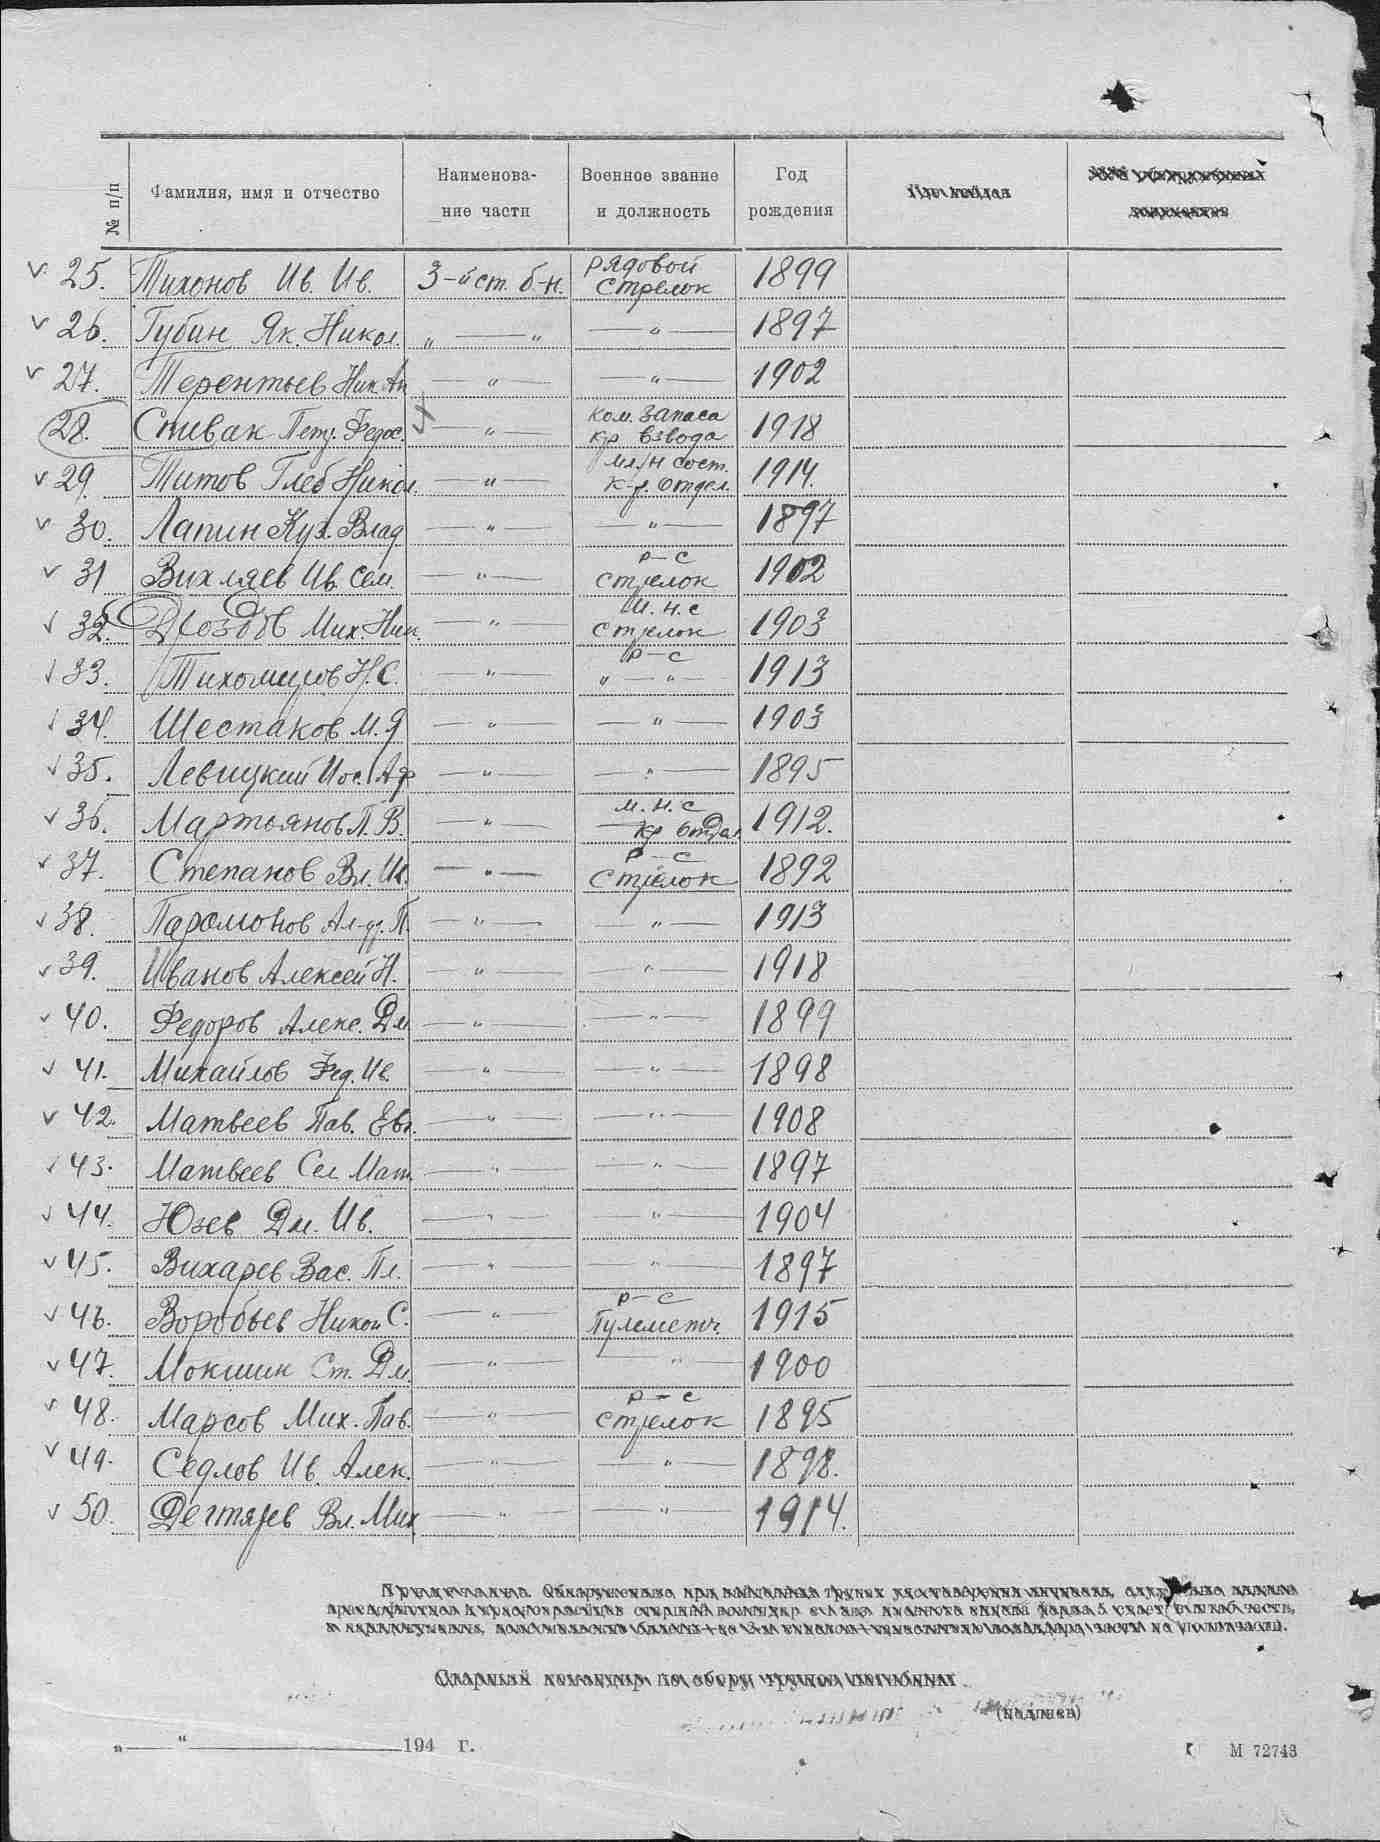 № п/п Фамилия, имя и отчество Наименова-ние части Военное звание и должность Год рождения
25. Тихонов Ив. Ив. 3-й ст. б-н. рядовой стрелок 1899
26. Губин Як. Никол. „ — „ — „ — 1897
27. Терентьев Ник. Ан — „ — — „ — 1902
28. Спивак Петр. Федос. — „ — ком. запаса кр взвода 1918
29. Титов Глеб Никол. — „ — мл/н сост. к-р. отдел. 1914.
30. Лапин Куз. Влад — „ — — „ — 1897
31 Вихляев Ив. Сем. — „ — р-с стрелок 1902
32. Дроздов Мих. Ник. — „ — м.н.с стрелок 1903
33. Тихомиров Н.С. — „ — р-с „ — „ 1913
34. Шестаков М.Я — „ — — „ — 1903
35. Левицкий Иос. Аф — „ — — „ — 1895
36. Мартьянов П.В. — „ — м.н.с кр отдел. 1912.
37. Степанов Вл. Ив. — „ — р-с стрелок 1892
38. Парамонов Ал-др. П. — „ — — „ — 1913
39. Иванов Алексей Н. — „ — — „ — 1918
40. Федоров Алекс. Дм — „ — — „ — 1899
41. Михайлов Фед. Ив. — „ — — „ — 1898
42. Матвеев Пав. — „ — — „ — 1908
43. Матвеев Мат. — „ — — „ — 1897
44. Юзев Дм. Ив. — „ — — „ — 1904
45. Вихарев Вас. Пл. — „ — — „ — 1897
46. Воробьев Никол С. — „ — р-с Пулеметч. 1915
47. Мокшин Ст. Дм. — „ — — „ — 1900
48. Марсов Мих. Пав. — „ — р-с стрелок 1895
49. Седлов Ив. Алек. — „ — — „ — 1898.
50. Дегтярев Вл. Мих — „ — — „ — 1914.
(подпись)
„ — “ — 194 г.
М 72743